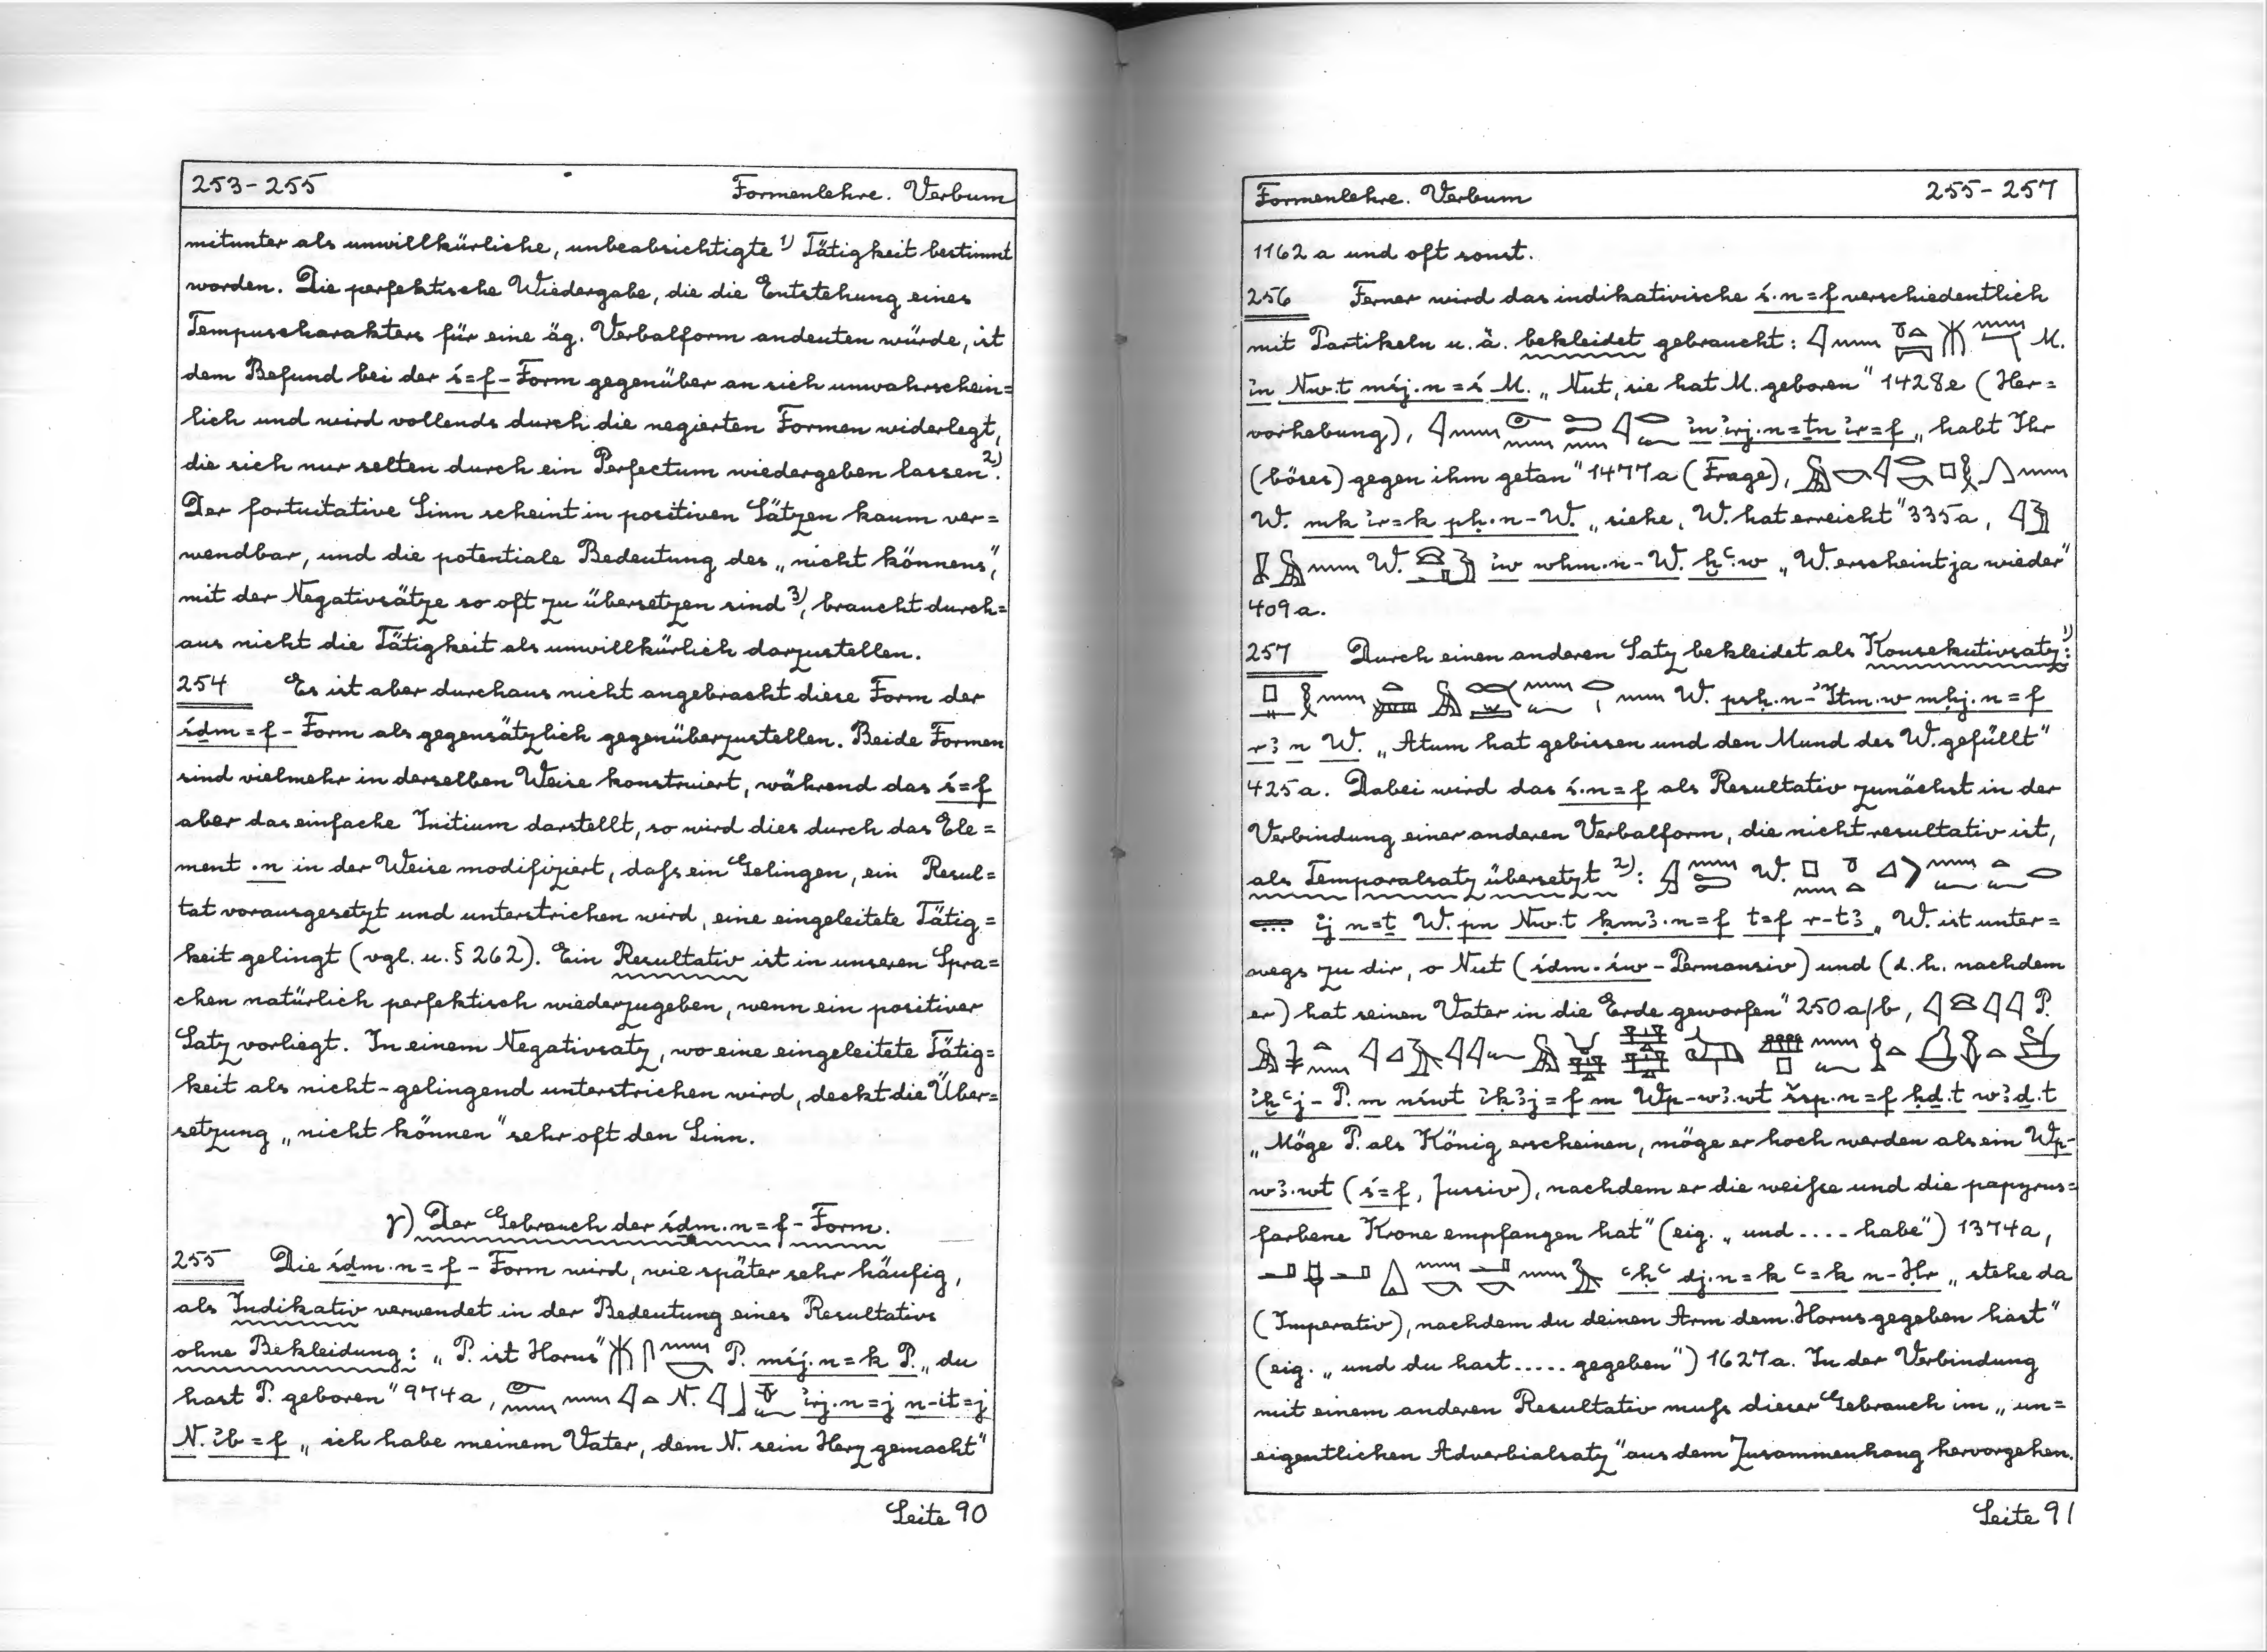 253-255 Formenlehre. Verbum
mitunter als unwillkürliche, unbeabsichtigte ¹⁾ Tätigkeit bestimmt
worden. Die perfektische Wiedergabe, die die Entstehung eines
Tempuscharakters für eine äg. Verbalform andeuten würde, ist
dem Befund bei der ś=f-Form gegenüber an sich unwahrschein=
lich und wird vollends durch die negierten Formen widerlegt,
die sich nur selten durch ein Perfectum wiedergeben lassen ²⁾.
Der fortuitative Sinn scheint in positiven Sätzen kaum ver=
wendbar, und die potentiale Bedeutung des „nicht könnens“,
mit der Negativsätze so oft zu übersetzen sind ³⁾, braucht durch=
aus nicht die Tätigkeit als unwillkürlich darzustellen.
254 Es ist aber durchaus nicht angebracht diese Form der
śḏm=f-Form als gegensätzlich gegenüberzustellen. Beide Formen
sind vielmehr in derselben Weise konstruiert, während das ś=f
aber das einfache Initium darstellt, so wird dies durch das Ele=
ment .n in der Weise modifiziert, daß ein Gelingen, ein Resul=
tat vorausgesetzt und unterstrichen wird, eine eingeleitete Tätig=
keit gelingt (vgl. u. § 262). Ein Resultativ ist in unseren Spra=
chen natürlich perfektisch wiederzugeben, wenn ein positiver
Satz vorliegt. In einem Negativsatz, wo eine eingeleitete Tätig=
keit als nicht-gelingend unterstrichen wird, deckt die Über=
setzung „nicht können“ sehr oft den Sinn.
γ) Der Gebrauch der śḏm.n=f-Form.
255 Die śḏm.n=f-Form wird, wie später sehr häufig,
als Indikativ verwendet in der Bedeutung eines Resultativs
ohne Bekleidung: „P. ist Horus“ P. mśj.n=k P. „du
hast P. geboren“ 974a, N. ỉrj.n=j n-it=j
N. ỉb=f „ich habe meinem Vater, dem N. sein Herz gemacht“
Seite 90
Formenlehre. Verbum 255-257
1162a und oft sonst.
256 Ferner wird das indikativische ś.n=f verschiedentlich
mit Partikeln u. ä. bekleidet gebraucht: M.
ỉn Nw.t mśj.n=ś M. „Nut, sie hat M. geboren“ 1428e (Her=
vorhebung), ỉn ỉrj.n=ṯn ỉr=f „habt Ihr
(böses) gegen ihm getan“ 1477a (Frage),
W. mk ỉr=k pḥ.n-W. „siehe, W. hat erreicht“ 335a,
W. ỉw whm.n-W. ḫꜥ.w „W. erscheint ja wieder“
409a.
257 Durch einen anderen Satz bekleidet als Konsekutivsatz ¹⁾:
W. psḥ.n-ꞽItm.w mḥj.n=f
rꜣ n W. „Atum hat gebissen und den Mund des W. gefüllt“
425a. Dabei wird das ś.n=f als Resultativ zunächst in der
Verbindung einer anderen Verbalform, die nicht resultativ ist,
als Temporalsatz übersetzt ²⁾: W.
ỉj n=ṯ W. pn Nw.t ḳmꜣ.n=f t=f r-tꜣ „W. ist unter=
wegs zu dir, o Nut (śḏm.św-Permansiv) und (d.h. nachdem
er) hat seinen Vater in die Erde geworfen“ 250a/b, P.
ỉḫꜥj-P. m nśwt ỉḳꜣj=f m Wp-wꜣ.wt šsp.n=f ḥḏ.t wꜣḏ.t
„Möge P. als König erscheinen, möge er hoch werden als ein Wp-
wꜣ.wt (ś=f, Jussiv), nachdem er die weiße und die papyrus=
farbene Krone empfangen hat“ (eig. „und .... habe“) 1374a,
ꜥḥꜥ dj.n=k ꜥ=k n-Ḥr „stehe da
(Imperativ), nachdem du deinen Arm dem Horus gegeben hast“
(eig. „und du hast ..... gegeben“) 1627a. In der Verbindung
mit einem anderen Resultativ muß dieser Gebrauch im „un=
eigentlichen Adverbialsatz“ aus dem Zusammenhang hervorgehen.
Seite 91